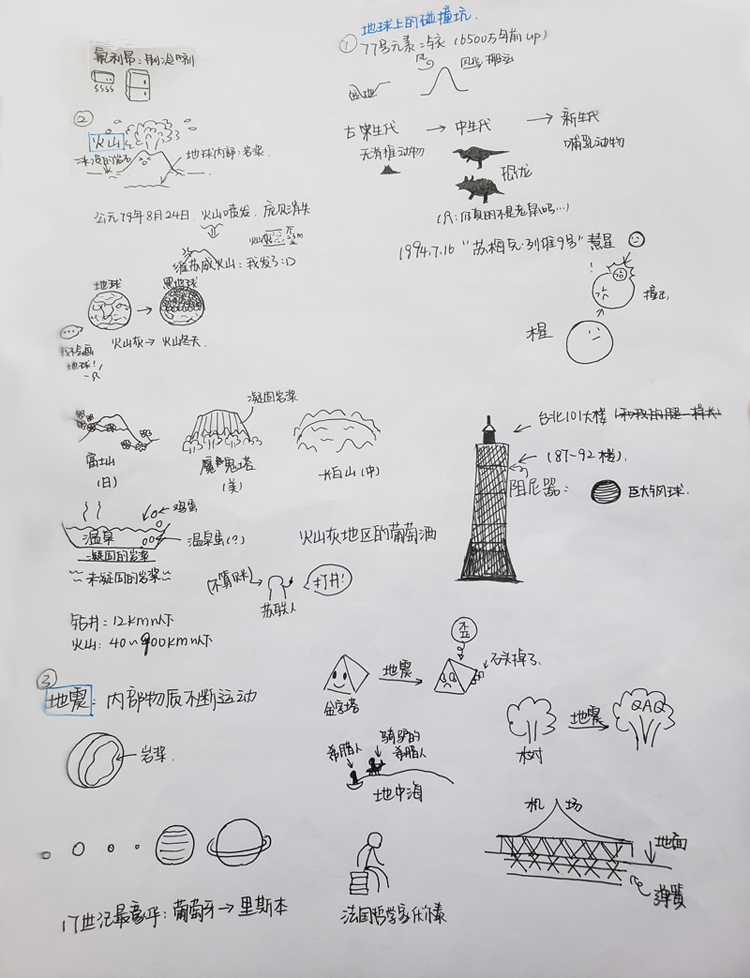 地球上的碰撞坑.
氟利昂:制冷剂
① 77号元素:铱 (6500万年前 up)
风
风华搬运
盆地
②
火山
冰凉的岩石
地球内部:岩浆.
古生代 → 中生代 → 新生代
无脊椎动物
恐龙
哺乳动物
公元79年8月24日.火山喷发.庞贝消失
火山灰
维苏威火山:我发了:D
1994.7.16 "苏梅克·列维9号"彗星
地球
黑地球
撞击
木星
我不会画
地球!
火山灰→火山冬天.
凝固岩浆
富士山
(日)
魔鬼塔
(美)
长白山(中)
台北101大楼
(87~92楼).
阻尼器:
巨大钢球.
鸡蛋
温泉
温泉蛋(?)
凝固的岩浆
~未凝固的岩浆~
火山灰地区的葡萄酒
打井!
苏联人
钻井:12km以下
火山:40~900km以下
③
地震:内部物质不断运动
岩浆
金字塔
地震
歪
石头掉了.
希腊人
骑驴的
希腊人
地中海
树
地震
QAQ
机场
地面
弹簧
17世纪最豪华:葡萄牙→里斯本
法国哲学家伏尔泰